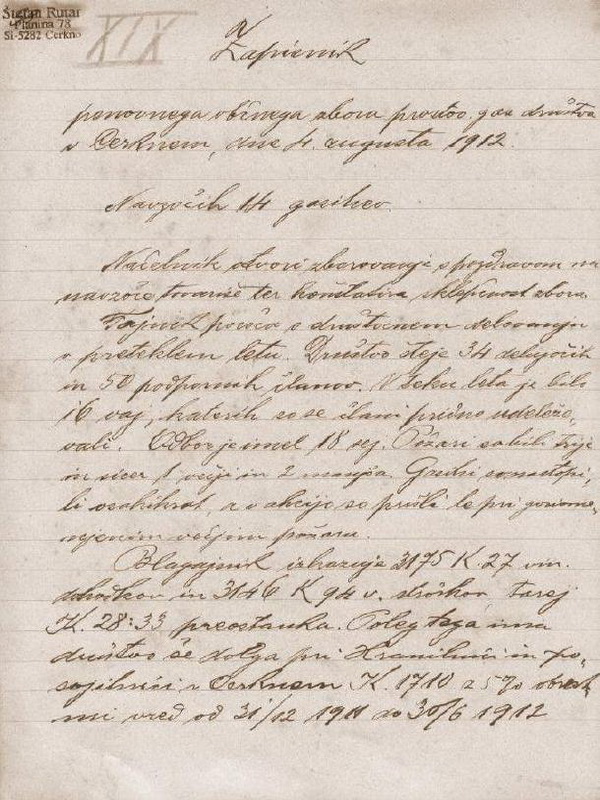 Štefan Rutar
Planina 78
SI-5282 Cerkno
XIX
Zapisnik
ponovnega občnega zbora prostov. gas. društva
v Cerknem, dne 4. augusta 1912.
Navzočih 14 gasilcev.
Načelnik otvori zborovanje s pozdravom na
navzoče tovariše ter konštatira sklepčnost zbora.
Tajnik poroča o društvenem delovanju
v preteklem letu. Društvo šteje 34 delujočih
in 50 podpornih članov. V teku leta je bilo
16 vaj, katerih so se člani pridno udeleže,
vali. Odbor je imel 18 sej. Požari so bili trije
in sicer 1 večji in 2 manjša. Gasilci so nastopi,
li vsakikrat, a v akcijo so prišli le pri
večjim požaru.
Blagajnik izkazuje 3175 K. 27 vin.
dohodkov in 3146 K 94 v. stroškov torej
K. 28:33 preostanka. Poleg tega ima
društvo še dolga pri Hranilnici in po,
sojilnici v Cerknem K. 1710 z 5% obrest,
mi vred od 31/12 1911 do 30/6 1912